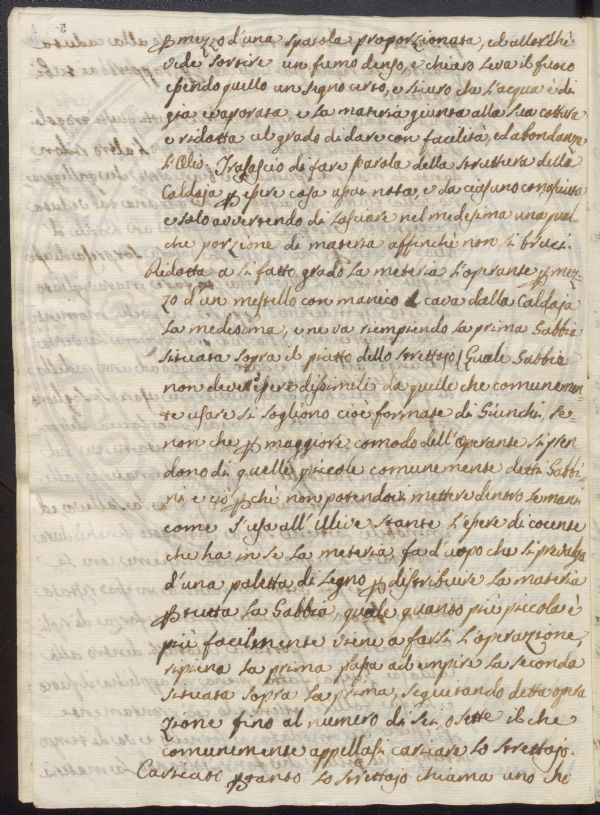 ꝑ mezzo d'una spatola proporzionata, ed allorchè
vide sortire un fumo denso, e chiaro leva il fuoco
essendo quello un segno certo, e sicuro che l'acqua è di
già evaporata, e la materia giunta alla sua cottura
e ridotta al grado di dare con facilità, ed abondanza
l'Olio. Tralascio di fare parola della struttura della
Caldaja ꝑ essere cosa assai nota, e da ciascuno conosciuta
e solo avvertendo di lasciare nel medesima una qual
che porzione di materia affinchè non si bruci.
Ridotta a sì fatto grado la materia l'operante ꝑ mez-
zo d'un mestello con manico cava dalla Caldaja
la medesima, e ne va riempiendo la prima Gabbia
situata sopra il piatto dello strettojo, Quale Gabbia
non deve essere dissimile da quelle che comunemen-
te usare si sogliono cioè formate di Giunchi, se-
non che ꝑ maggiore comodo dell'Operante si pren
dono di quelle piccole comunemente detti Gabbi-
ni e ciò ꝑchè non potendovisi mettere dentro le mani
come s'usa all'ulive stante l'essere di cocente
che ha in se la materia, fa d'uopo che si prevalga
d'una paletta di Legno ꝑ distribuire la materia
ꝑ tutta la Gabbia, quale quanto più piccola è
più facilmente viene a farsi l'operazione,
ripiena la prima passa ad empire la seconda
situata sopra la prima, seguitando detta opera
zione fino al numero di sei, o sette il che
comunemente appellasi caricare lo strettojo.
Caricato ꝑtanto lo strettojo chiama uno che